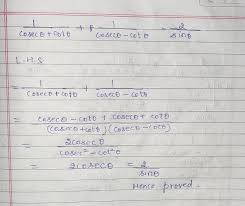 1/(cosecθ+cotθ) + 1/(cosecθ-cotθ) = 2/sinθ
L.H.S
= 1/(cosecθ+cotθ) + 1/(cosecθ-cotθ)
= (cosecθ-cotθ + cosecθ+cotθ)/((cosecθ+cotθ)(cosecθ-cotθ))
= 2cosecθ/(cosec²-cot²θ)
= 2cosecθ = 2/sinθ
Hence proved.